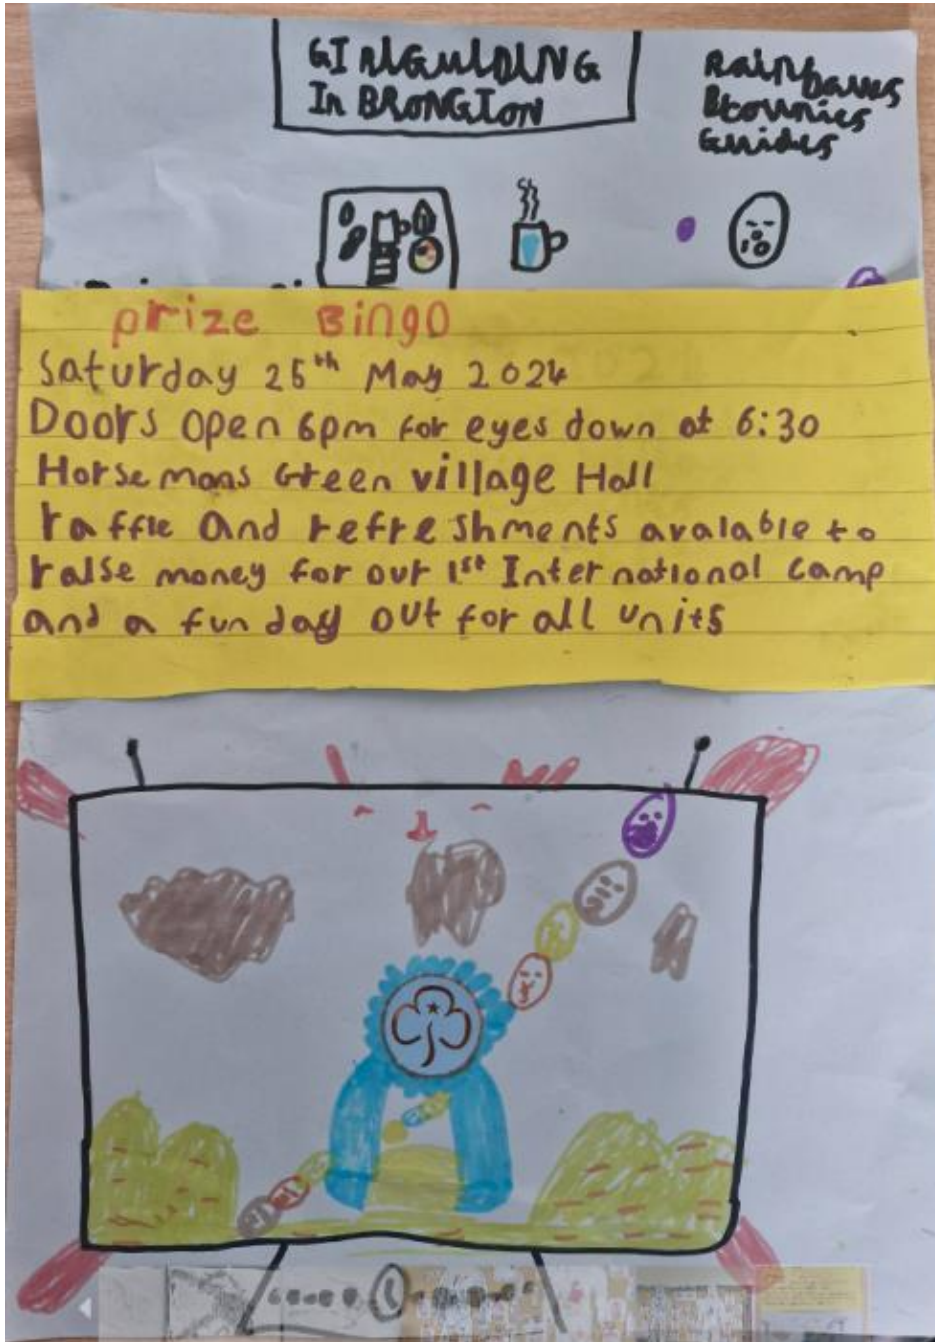 GIRlGuIDING
In BRONGTON
Rainbows
Brownies
Guides
prize Bingo
Saturday 25th May 2024
Doors open 6pm for eyes down at 6:30
Horsemans Green village Hall
raffle and refreshments avalable to
raise money for our 1st International camp
and a fun day out for all units